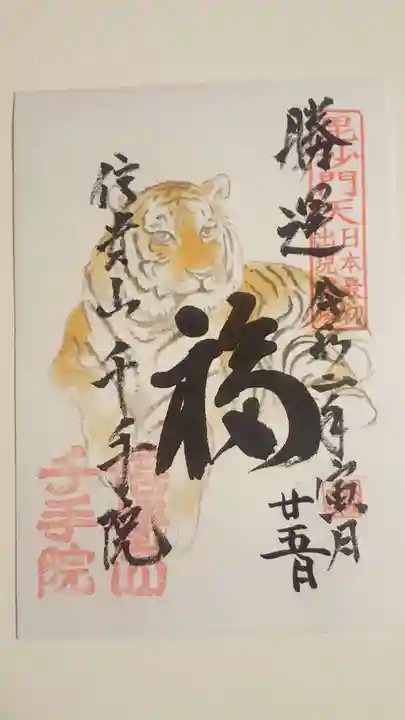 毘沙門天
日本最初
出現
勝運
令和二年寅月
廿五日
福
信貴山千手院
信貴山
千手院